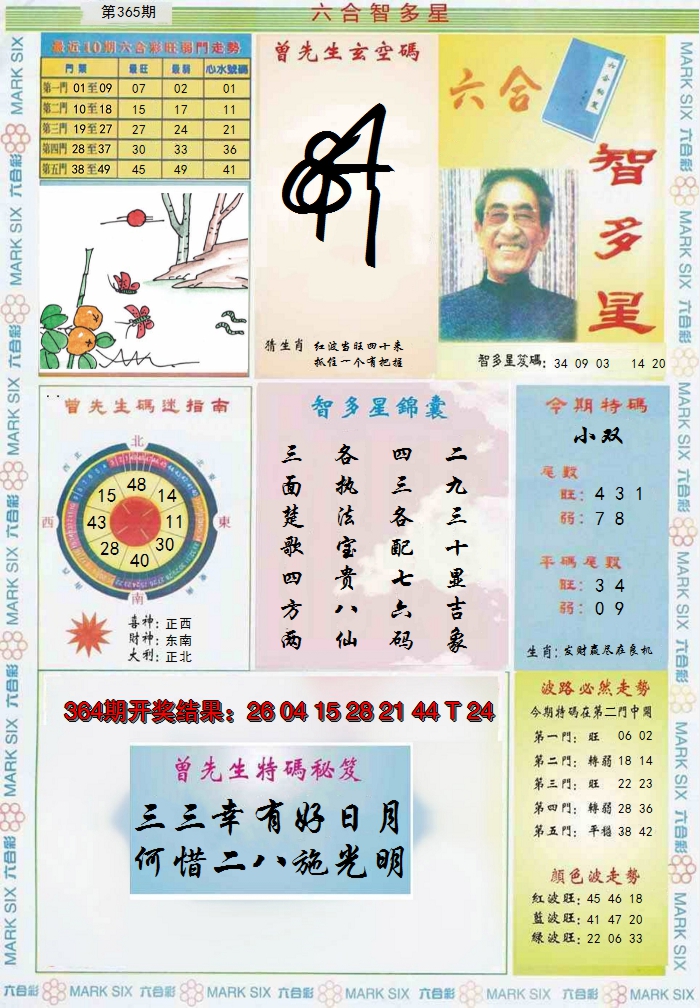 第365期
六合智多星
最近10期六合彩旺弱門走勢
門類 最旺 最弱 心水號碼
第一門 01至09 07 02 01
第二門 10至18 15 17 11
第三門 19至27 27 24 21
第四門 28至37 30 33 36
第五門 38至49 45 49 41
曾先生玄空碼
猜生肖 红波当旺四十来
抓住一个有把握
六合
智
多
星
智多星笈碼: 34 09 03 14 20
曾先生碼迷指南
北
西
東
南
48
14
11
30
40
28
43
15
喜神: 正西
财神: 东南
大利: 正北
智多星錦囊
二九三十显吉象
四三各配七六码
各执法宝贵八仙
三面楚歌四方两
今期特碼
小双
尾數
旺: 4 3 1
弱: 7 8
平碼尾數
旺: 3 4
弱: 0 9
生肖: 发财赢尽在良机
364期开奖结果: 26 04 15 28 21 44 T 24
曾先生特碼秘笈
三三幸有好日月
何惜二八施光明
波路必然走勢
今期特碼在第二門中開
第一門: 旺 06 02
第二門: 轉弱 18 14
第三門: 旺 22 23
第四門: 轉弱 28 36
第五門: 平穩 38 42
顏色波走勢
紅波旺: 45 46 18
藍波旺: 41 47 20
綠波旺: 22 06 33
MARK SIX 六合彩 MARK SIX 六合彩 MARK SIX 六合彩 MARK SIX 六合彩 MARK SIX 六合彩